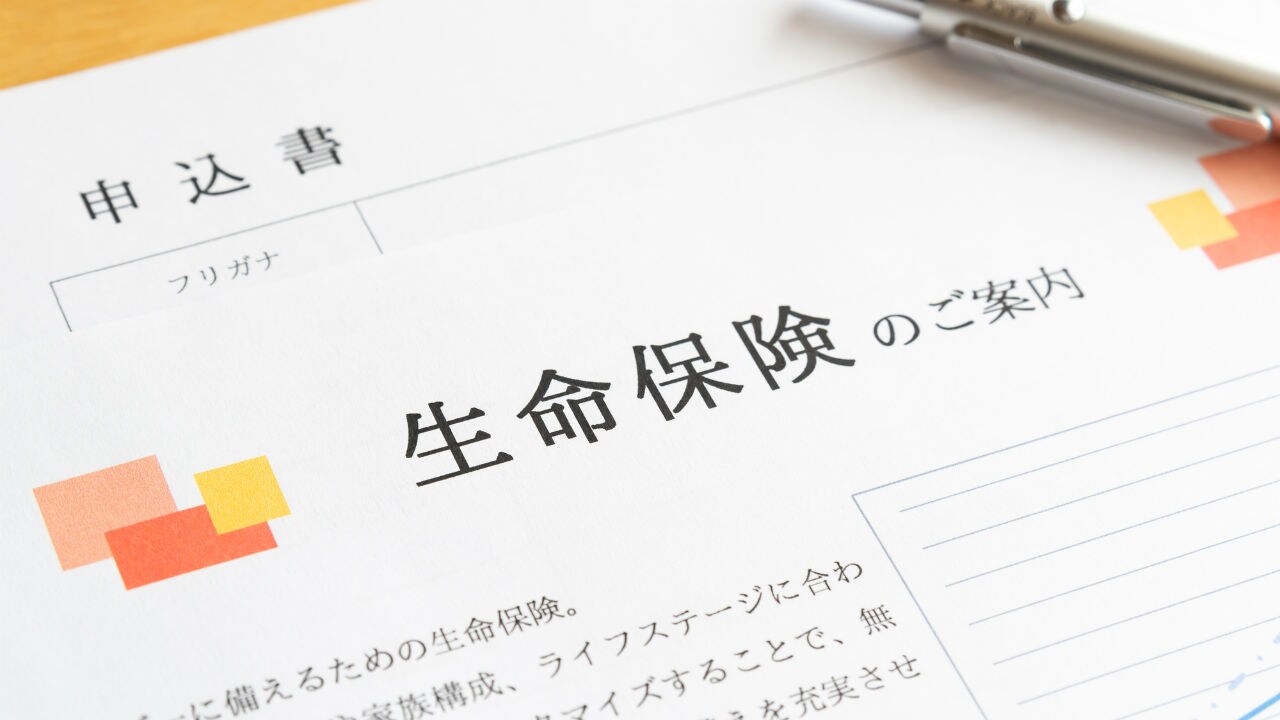 申込書
フリガナ
生命保険のご案内
に備えるための生命保険。
家族構成、ライフステージに合わ
マイズすることで、無
を充実させ